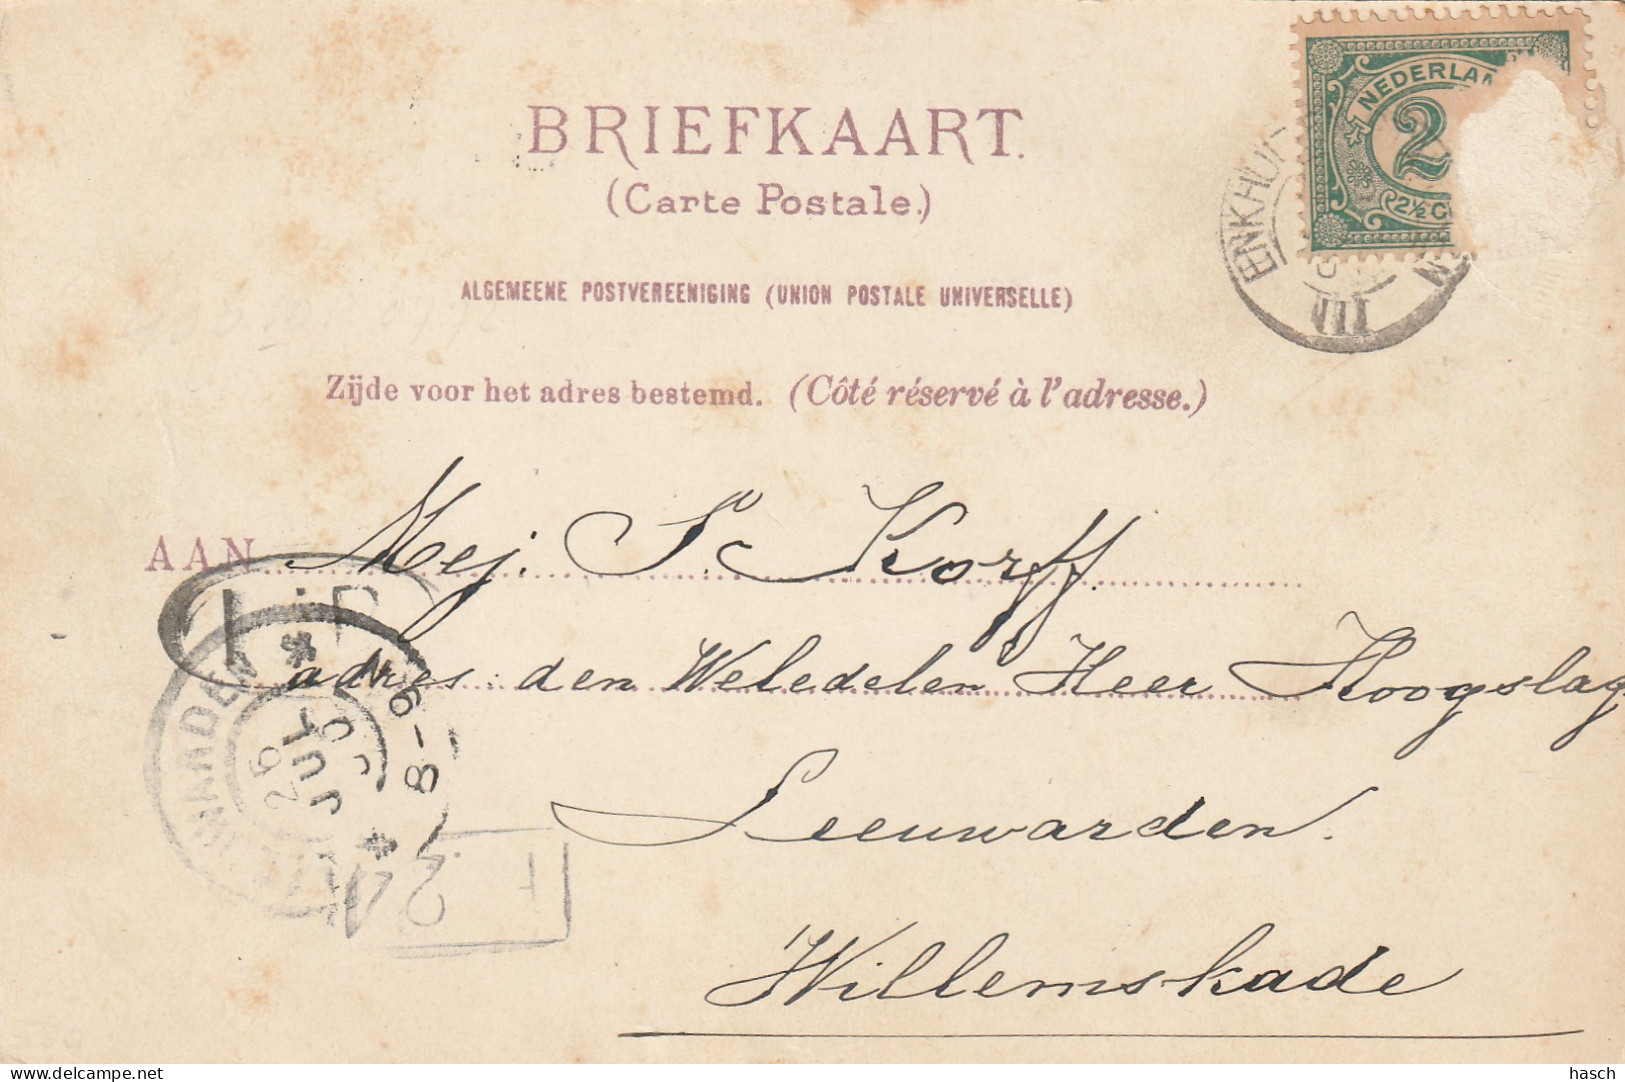 BRIEFKAART.
(Carte Postale.)
ALGEMEENE POSTVEREENIGING (UNION POSTALE UNIVERSELLE)
Zijde voor het adres bestemd. (Côté réservé à l'adresse.)
NEDERLAN
2
2½ C
ENKHUI
VII
AAN Mej. S. Korff.
adres: den Weledelen Heer Hoogslag
Leeuwarden.
Willemskade
26 JUL
8-9
hasch